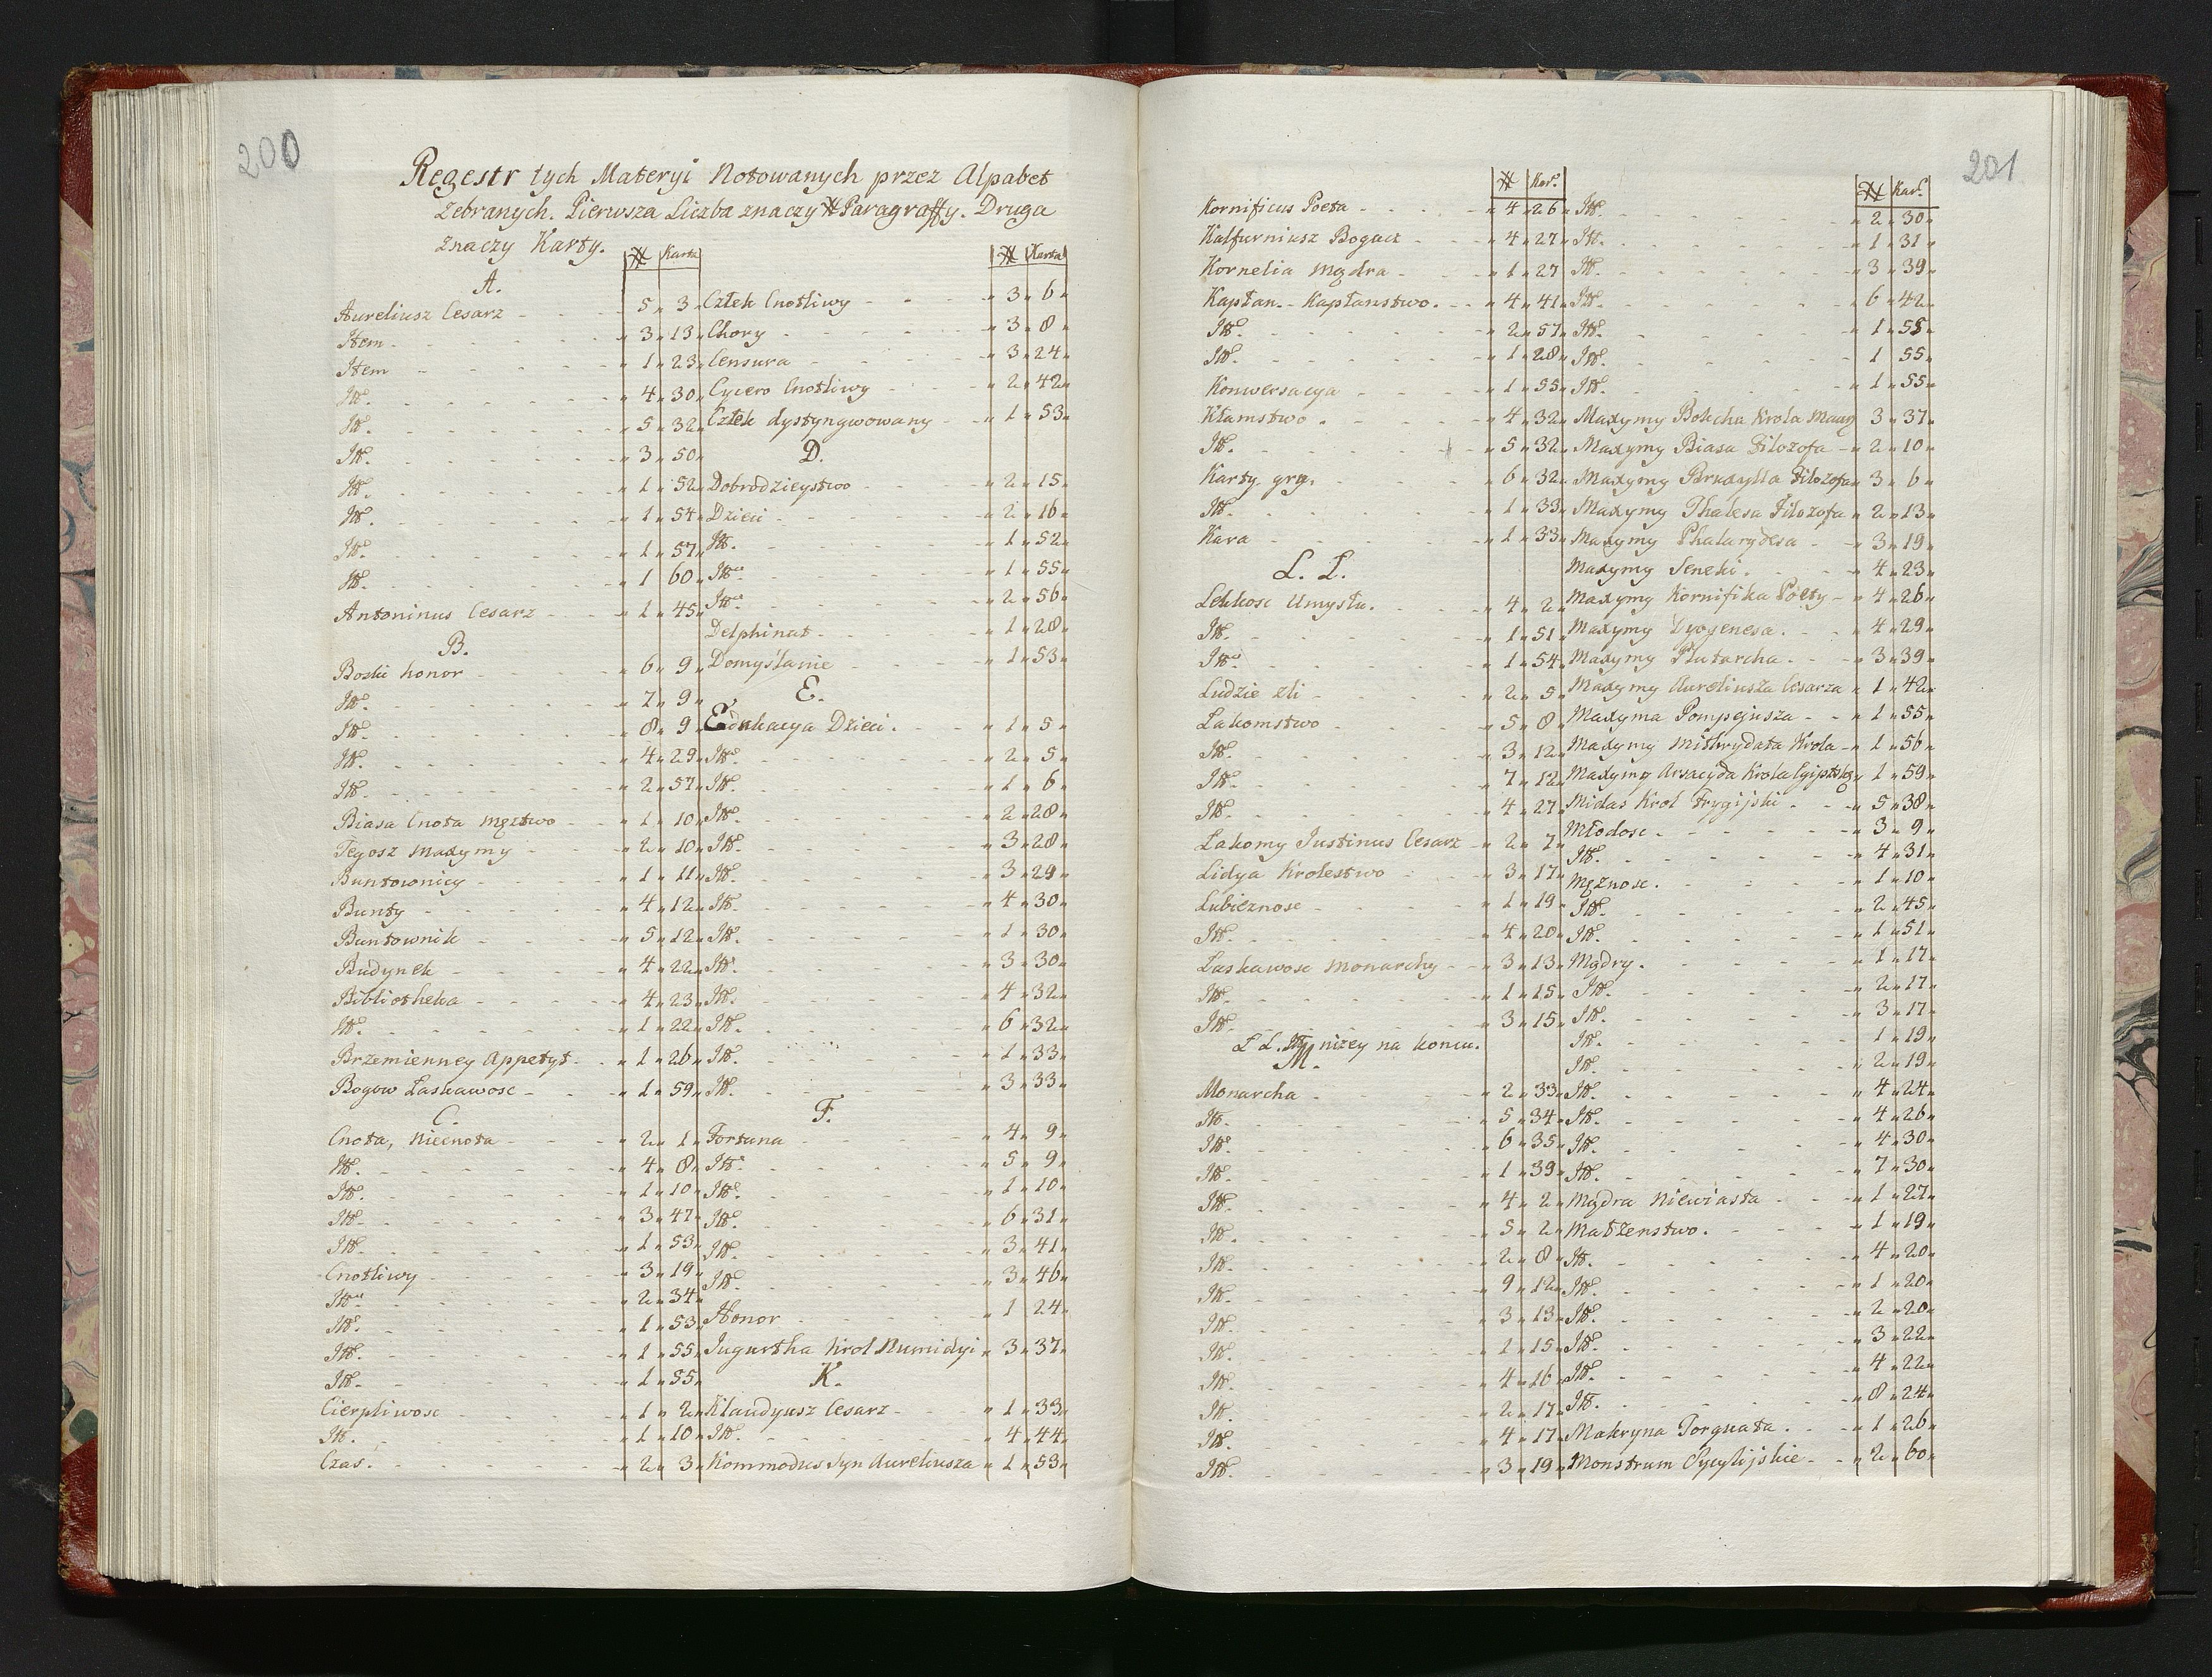 200
Regestr tych Materyi Notowanych przez Alpabet
Zebranych. Pierwsza Liczba znaczy # Paragraffy. Druga
Znaczy Karty.
# Karta
A.
Aureliusz Cesarz - - - 5 „ 3
Item - - - 3 „ 13
Item - - - 1 „ 23
Itt. - - - 4 „ 30
Itt. - - - 5 „ 32
Itt. - - - 3 „ 50
Itt. - - - 1 „ 52
Itt. - - - 1 „ 54
Itt. - - - 1 „ 57
Itt. - - - 1 „ 60
Antoninus Cesarz - - - 1 „ 45
B.
Bozki honor - - - 6 „ 9
Itt. - - - 7 „ 9
Itt. - - - 8 „ 9
Itt. - - - 4 „ 29
Itt. - - - 2 „ 57
Biasa Cnota Męztwo - - - 1 „ 10
Tegosz Maxymy - - - 2 „ 10
Buntownicy - - - 1 „ 11
Bunty - - - 4 „ 12
Buntownik - - - 5 „ 12
Budynek - - - 4 „ 22
Bibliotheka - - - 4 „ 23
Itt. - - - 1 „ 22
Brzemienney Appetyt - - - 1 „ 26
Bogow Łaskawosc - - - 1 „ 59
C.
Cnota, Niecnota - - - 2 „ 1
Itt. - - - 4 „ 8
Itt. - - - 1 „ 10
Itt. - - - 3 „ 47
Itt. - - - 1 „ 53
Cnotliwy - - - 3 „ 19
Itt. - - - 2 „ 34
Itt. - - - 1 „ 53
Itt. - - - 1 „ 55
Itt. - - - 1 „ 55
Cierpliwosc - - - 1 „ 2
Itt. - - - 1 „ 10
Czas. - - - 2 „ 3
# Karta
Człek Cnotliwy - - - 3 „ 6
Chory - - - 3 „ 8
Censura - - - 3 „ 24
Cycero Cnotliwy - - - 2 „ 42
Człek dystyngwowany - - - 1 „ 53
D.
Dobrodzieystwo - - - 2 „ 15
Dzieci - - - 2 „ 16
Itt. - - - 1 „ 52
Itt. - - - 1 „ 55
Itt. - - - 2 „ 56
Delphinat - - - 1 „ 28
Domyślanie - - - 1 „ 53
E.
Edukacya Dzieci. - - - 1 „ 5
Itt. - - - 2 „ 5
Itt. - - - 1 „ 6
Itt. - - - 2 „ 28
Itt. - - - 3 „ 28
Itt. - - - 3 „ 29
Itt. - - - 4 „ 30
Itt. - - - 1 „ 30
Itt. - - - 3 „ 30
Itt. - - - 4 „ 32
Itt. - - - 6 „ 32
Itt. - - - 1 „ 33
Itt. - - - 3 „ 33
F.
Fortuna - - - 4 „ 9
Itt. - - - 5 „ 9
Itt. - - - 1 „ 10
Itt. - - - 6 „ 31
Itt. - - - 3 „ 41
Itt. - - - 3 „ 46
Honor - - - 1 „ 24
Jugurtha Krol Numidyi „ 3 „ 37
K.
Klaudyusz Cesarz - - - 1 „ 33
Itt. - - - 4 „ 44
Kommodus Syn Aureliusza „ 1 „ 53
201
# Kar.
Kornificus Poeta - - - 4 „ 26
Kalfurniusz Bogacz - - - 4 „ 27
Kornelia Mądra - - - 1 „ 27
Kapłan. - Kapłanstwo. - - - 4 „ 41
Itt. - - - 2 „ 57
Itt. - - - 1 „ 28
Konwersacya - - - 1 „ 55
Kłamstwo. - - - 4 „ 32
Itt. - - - 5 „ 32
Karty gry. - - - 6 „ 32
Itt. - - - 1 „ 33
Kara - - - 1 „ 33
L. Ł.
Lekkosc Umysłu. - - - 4 „ 2
Itt. - - - 1 „ 51
Itt. - - - 1 „ 54
Ludzie zli - - - 2 „ 5
Łakomstwo - - - 5 „ 8
Itt. - - - 3 „ 12
Itt. - - - 7 „ 12
Itt. - - - 4 „ 27
Łakomy Justinus Cesarz - 2 „ 7
Lidya Krolestwo - - - 3 „ 17
Lubieznosc - - - 1 „ 19
Itt. - - - 4 „ 20
Łaskawosc Monarchy - - - 3 „ 13
Itt. - - - 1 „ 15
Itt. - - - 3 „ 15
L Ł. niżey na koncu.
M.
Monarcha - - - 2 „ 33
Itt. - - - 5 „ 34
Itt. - - - 6 „ 35
Itt. - - - 1 „ 39
Itt. - - - 4 „ 2
Itt. - - - 5 „ 2
Itt. - - - 2 „ 8
Itt. - - - 9 „ 12
Itt. - - - 3 „ 13
Itt. - - - 1 „ 15
Itt. - - - 4 „ 16
Itt. - - - 2 „ 17
Itt. - - - 4 „ 17
Itt. - - - 3 „ 19
# Kar.
Itt. - - - 2 „ 30
Itt. - - - 1 „ 31
Itt. - - - 3 „ 39
Itt. - - - 6 „ 42
Itt. - - - 1 „ 55
Itt. - - - 1 55
Itt. - - - 1 „ 55
Maxymy Bokcha Krola 3 „ 37
Maxymy Biasa Filozofa - 2 „ 10
Maxymy Bruxylla Filozofa 3 „ 6
Maxymy Thalesa Filozofa - 2 „ 13
Maxymy Phalarydesa - 3 „ 19
Maxymy Seneki. - - - 4 „ 23
Maxymy Kornifika Poety - 4 „ 26
Maxymy Dyogenesa. - - 4 „ 29
Maxymy Plutarcha. - - 3 „ 39
Maxymy Aureliusza Cesarza „ 1 „ 42
Maxyma Pompejusza - - 1 „ 55
Maxymy Mithrydata Krola - 1 „ 56
Maxymy Arsacyda Krola Egiptsk 1 „ 59
Midas Krol Frygijski. - - 5 „ 38
Młodosc. - - - 3 „ 9
Itt. - - - 4 „ 31
Mężnosc. - - - 1 „ 10
Itt. - - - 2 „ 45
Itt. - - - 1 „ 51
Mądry. - - - 1 „ 17
Itt. - - - 2 „ 17
Itt. - - - 3 „ 17
Itt. - - - 1 „ 19
Itt. - - - 2 „ 19
Itt. - - - 4 „ 24
Itt. - - - 4 „ 26
Itt. - - - 4 „ 30
Itt. - - - 7 „ 30
Mądra Niewiasta - - - 1 „ 27
Małżenstwo. - - - 1 „ 19
Itt. - - - 4 „ 20
Itt. - - - 1 „ 20
Itt. - - - 2 „ 20
Itt. - - - 3 „ 22
Itt. - - - 4 „ 22
Itt. - - - 8 „ 24
Makryna Torquata. - - 1 „ 26
Monstrum Sycylijskie - - 2 „ 60